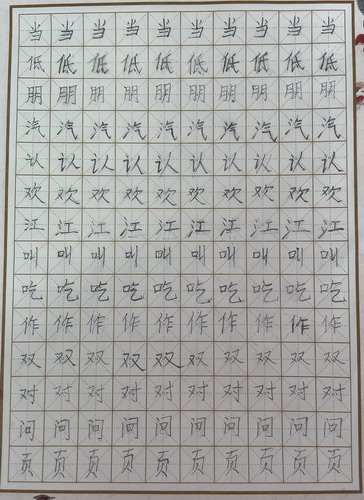 当当当当当当当当当当
低低低低低低低低低低
朋朋朋朋朋朋朋朋朋朋
汽汽汽汽汽汽汽汽汽汽
认认认认认认认认认认
欢欢欢欢欢欢欢欢欢欢
江江江江江江江江江江
叫叫叫叫叫叫叫叫叫叫
吃吃吃吃吃吃吃吃吃吃
作作作作作作作作作作
双双双双双双双双双双
对对对对对对对对对对
问问问问问问问问问问
页页页页页页页页页页